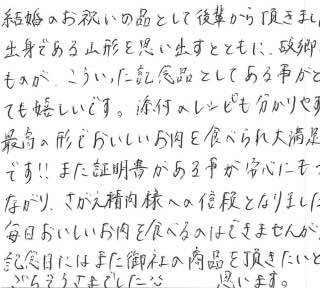 結婚のお祝いの品として後輩から頂きまし
出身である山形を思い出すとともに、故郷
ものが、こういった記念品としてある事がと
ても嬉しいです。添付のレシピも分かりやす
最高の形でおいしいお肉を食べられ大満足
です!!また証明書がある事が安心にもつ
ながり、さがえ精肉様への信頼となりました
毎日おいしいお肉を食べるのはできませんが、
記念日にはまた御社の商品を頂きたいと
思います。
ごちそうさまでした